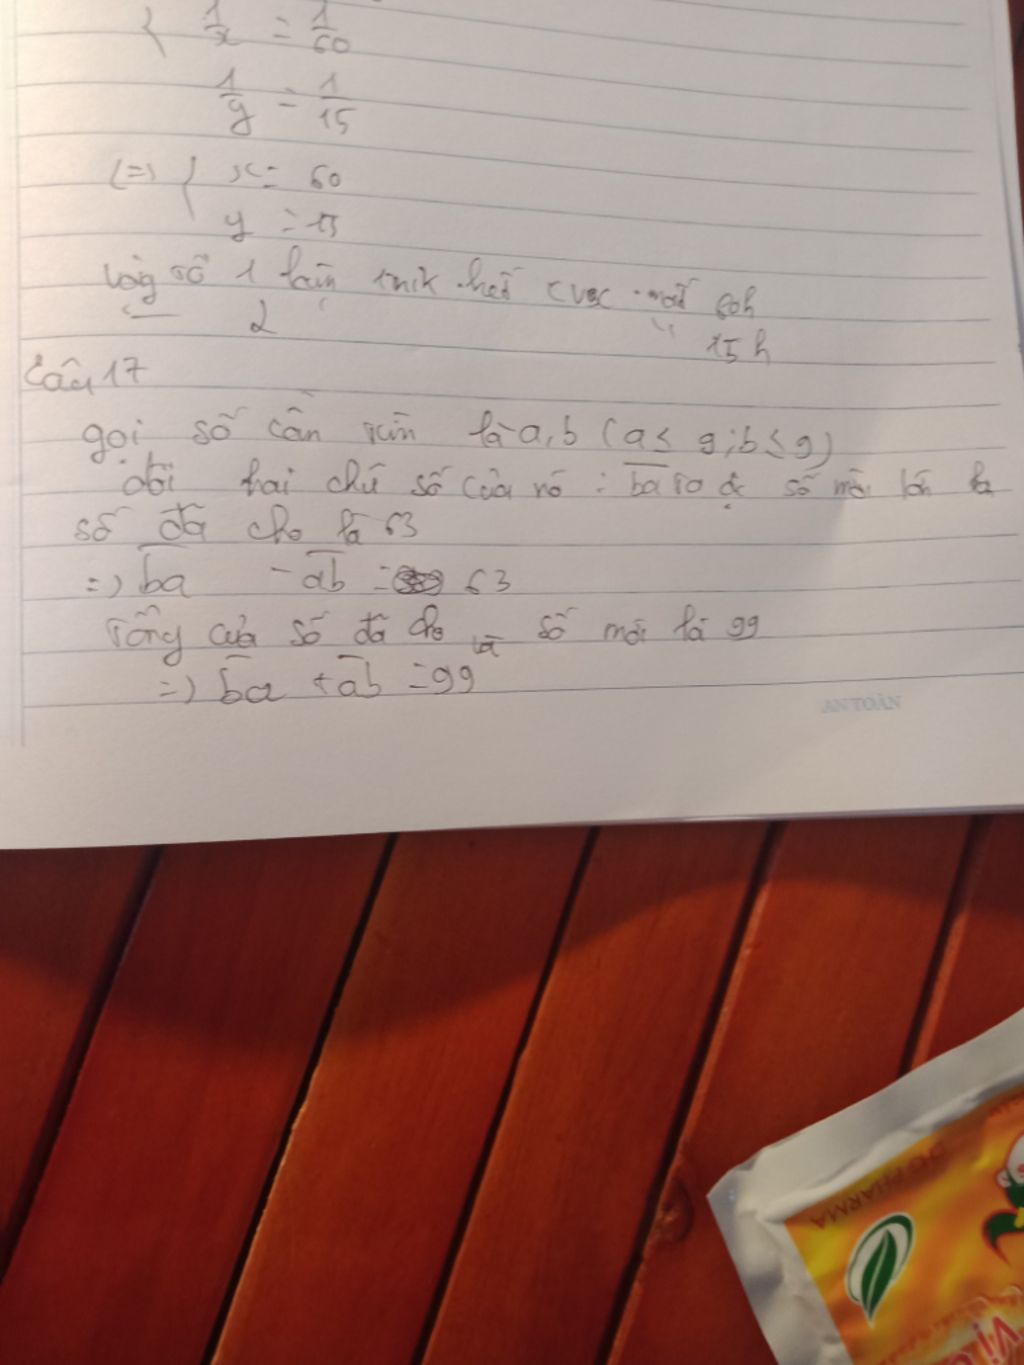 { 1/x = 1/60
1/y = 1/15
(=) { x = 60
y = 15
số 1 hết 60h
2 " 15h
Câu 17
gọi số cần tìm là a,b (a ≤ 9; b ≤ 9)
đổi hai chữ số của nó : ba số mới lớn
số đã cho là 63
=) ba - ab = 63
Tổng của số đã cho và số mới là 99
=) ba + ab = 99
AN TOÀN
DO PHARMA